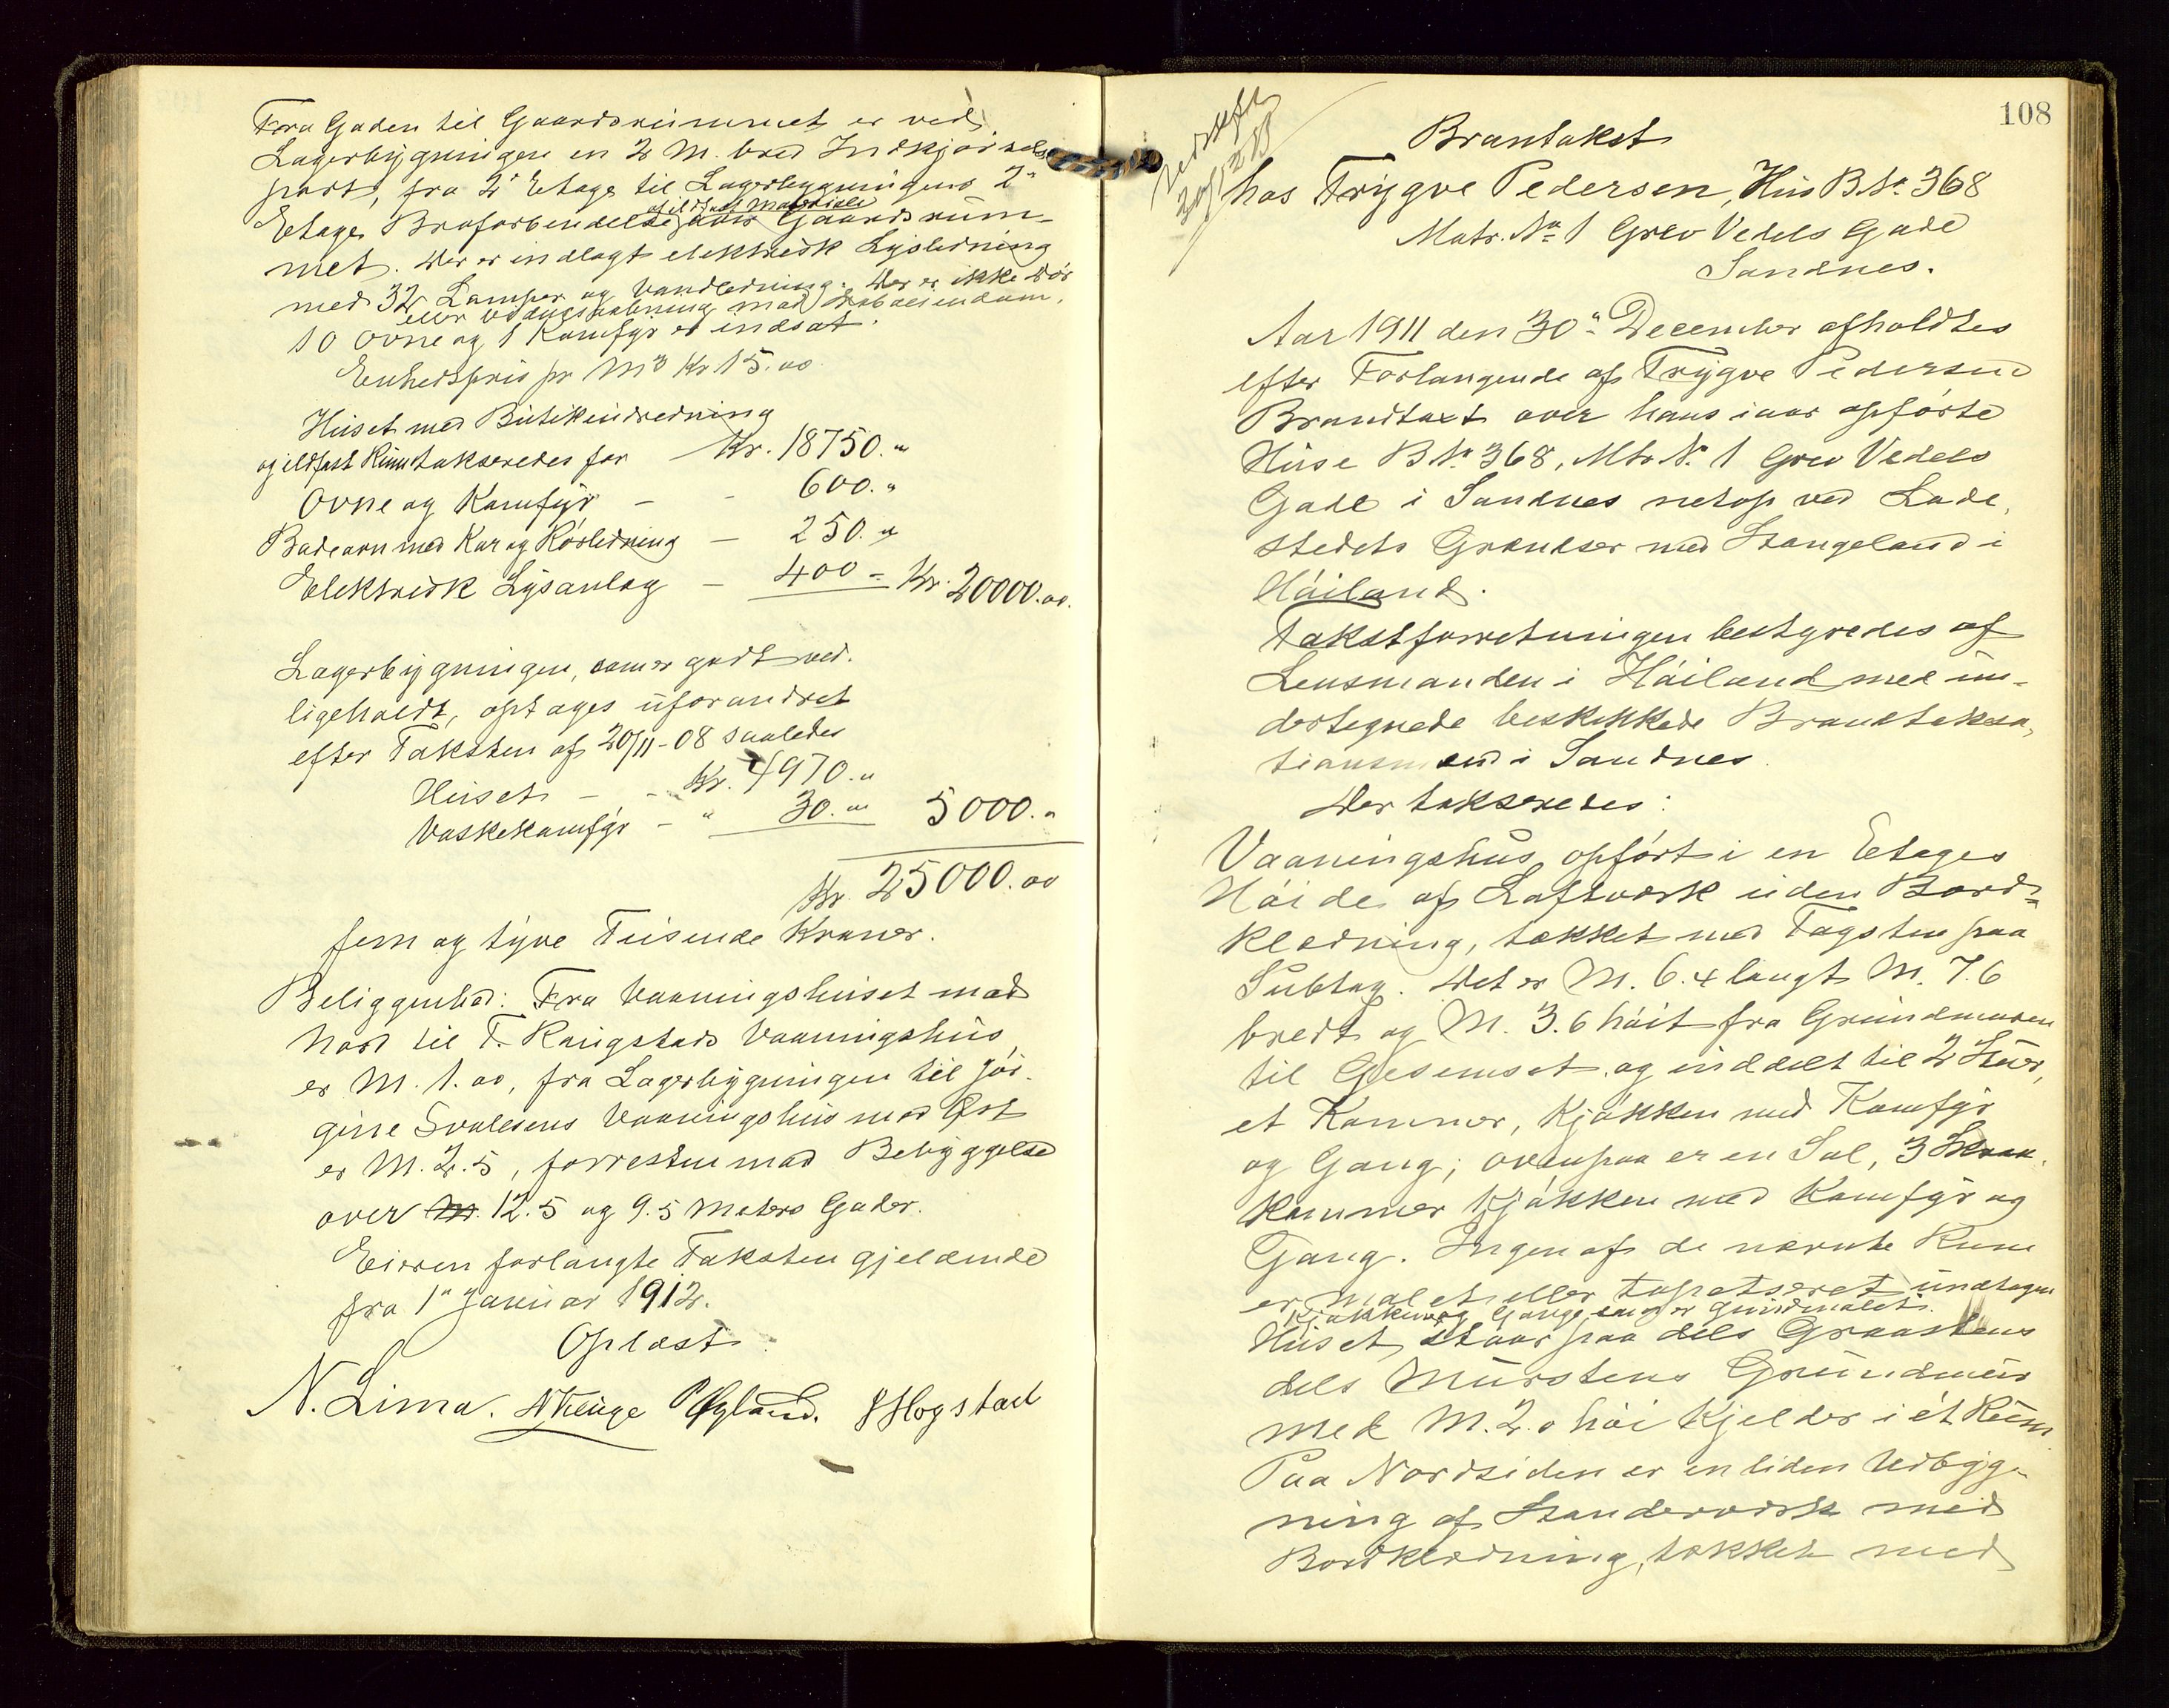 Fra Gaden til Gaardsrummet er ved
Lagerbygningen en 2 M. bred Indkjørsels
port, fra 2' Etage til Lagerbygningens 2"
af ildfast Materiale
Etage Broforbindelse over Gaardsrüm-
met. Der er indlagt elektrisk Lysledning
med 32 Lamper og Vandledning. Der er ikke Dør
eller Vinduesaabning mod Naboeiendom.
10 Ovne og 1 Komfyr er indsat.
Enhedspris pr M3 Kr 15.00
Huset med Butikindredning
og ildfast Rum takseredes for Kr. 18750."
Ovne og Komfyr - - 600."
Badeovn med Kar og Rørledning - 250."
Elektrisk Lysanlæg - 400 = Kr. 20000.00.
Lagerbygningen, som er godt ved.
ligeholdt, optages uforandret
efter Taksten af 20/11-08 saaledes
Huset - - Kr. 4970."
Vaskekomfyr - " 30.00 5000."
Kr. 25000.00
fem og tyve Tusende Kroner.
Beliggenhed: Fra Vaaningshuset mod
Nord til T. Kaigstads Vaaningshus
er M. 1.00, fra Lagerbygningen til Jør-
gine Svalesens Vaaningshus mod Øst
er M. 2.5, forresten mod Bebyggelse
over M. 12.5 og 9.5 Meters Gader.
Eieren forlangte Taksten gjeldende
fra 1" Januar 1912.
Oplæst
N. Lima. P Øgland. Hogstad
108
30/12 11
Brantakst
hos Trygve Pedersen, Hus B.No. 368
Matr. No 1 Grev Vedels Gade
Sandnes.
Aar 1911 den 30" December afholdtes
efter Forlangende af Trygve Pedersen
Brandtaxt over hans iaar opførte
Huse B No 368, Mtr No. 1 Grev Vedels
Gade i Sandnes netop ved Lade,
stedets Grændser med Stangeland i
Høiland.
Takstforretningen bestyredes af
Lensmanden i Høiland med un-
dertegnede beskikkede Brandtaksa,
tionsmænd i Sandnes.
Der takseredes:
Vaaningshus, opført i en Etages
Høide af Laftværk uden Bord-
klædning, tækket med Tagsten paa
Subtag. Det er M. 6.4 langt M. 7.6
bredt og M. 3.6 høit fra Grundmuren
til Gesemset og inddelt til 2 Stuer,
et Kammer, Kjøkken med Komfyr
og Gang; ovenpaa er en Sal, 3 Straa
kammer Kjøkken med Komfyr og
Gang. Ingen af de nævnte Rum
er malet eller tapetseret undtagen
Kjøkken og Gange, som er grundmalet.
Huset staar paa dels Graastens
dels Mürstens Gründmür
med M. 2.0 høi Kjelder i ét Rum
Paa Nordsiden er en liden Udbyg-
ning af Standerværk med
Bordklædning, tækket med